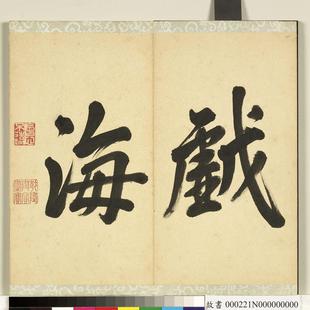 戲
海
故書 000221N000000000